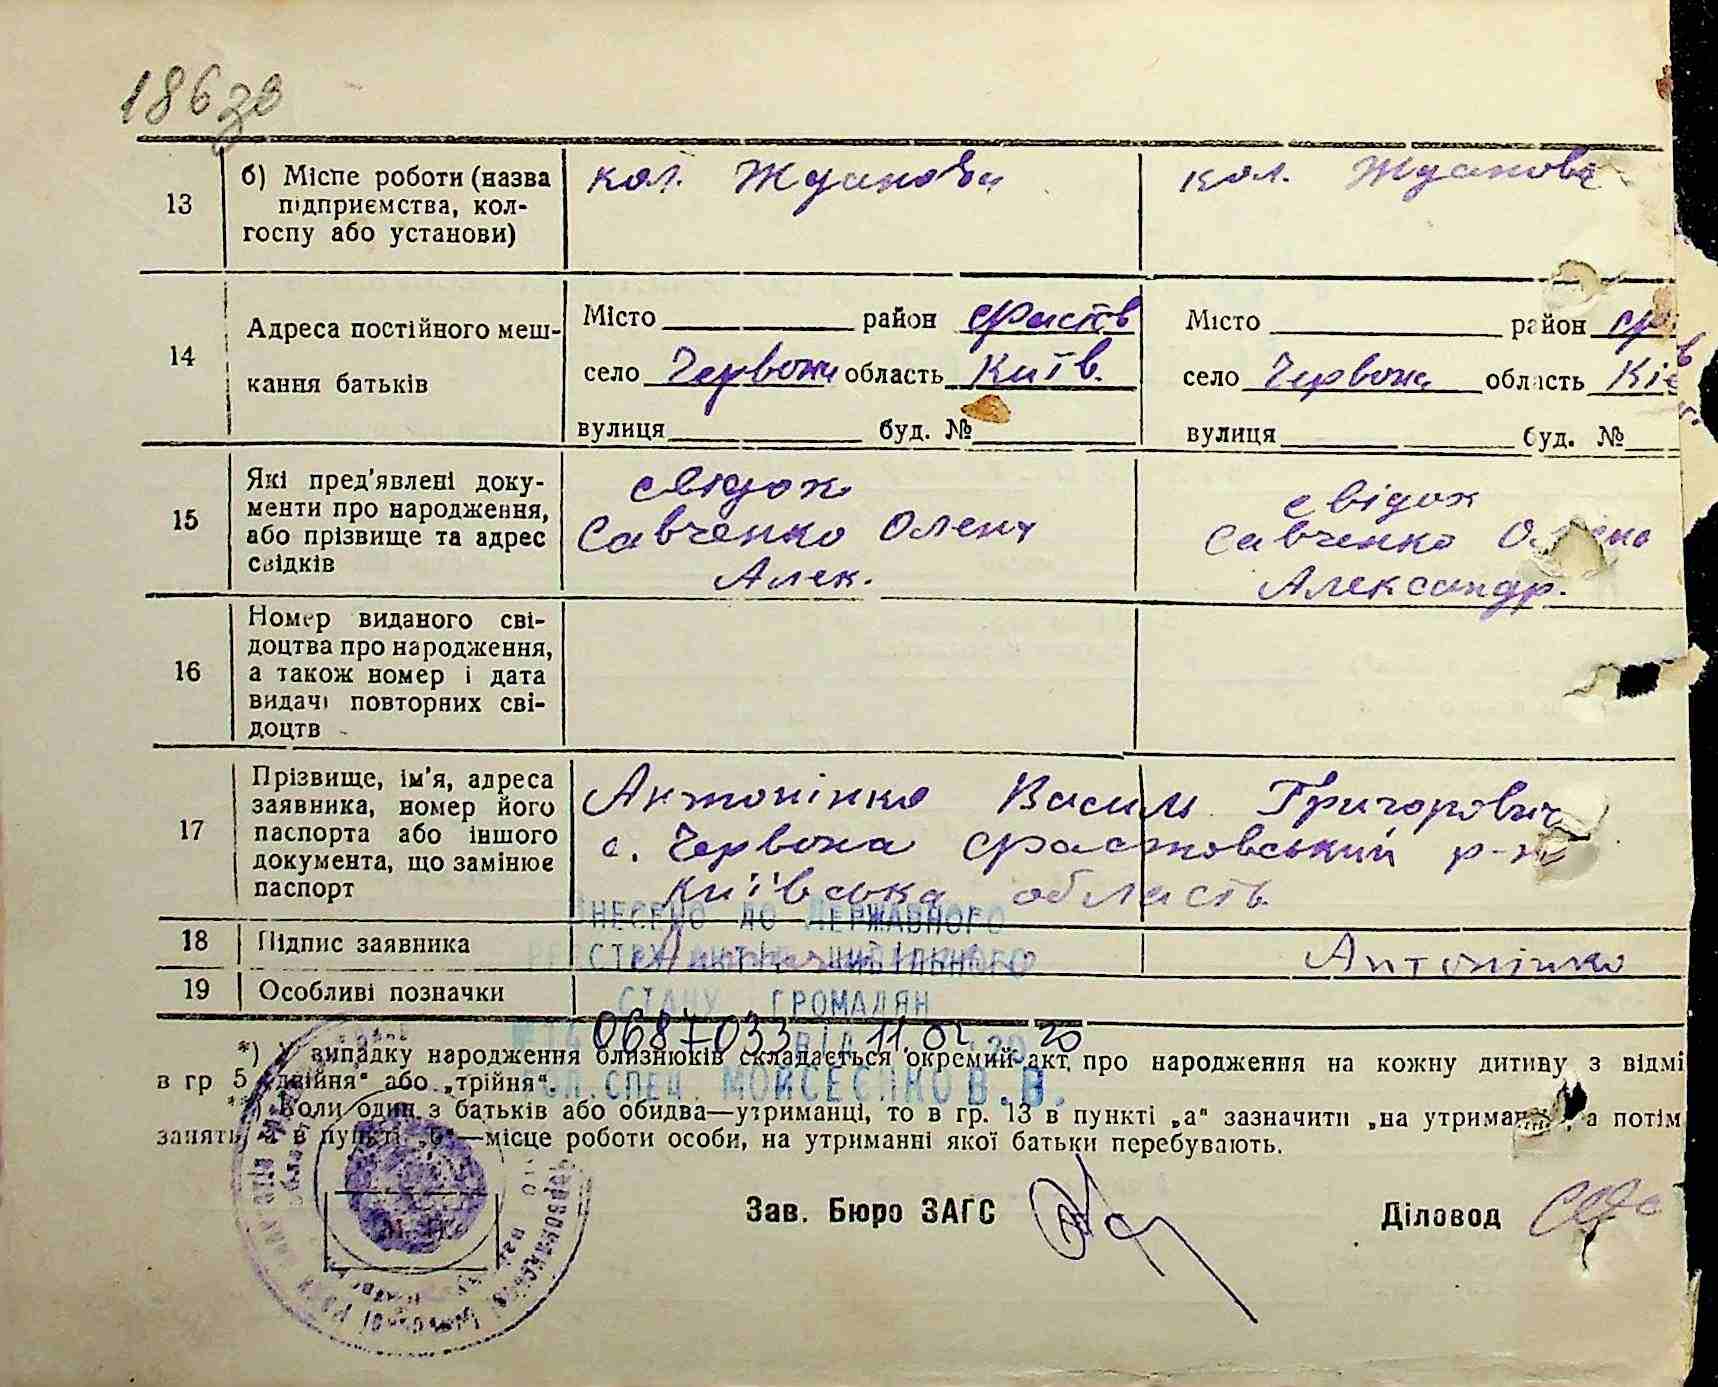 186 зв
13 б) Місце роботи (назва підприємства, колгоспу або установи) кол. Жданова кол. Жданова
14 Адреса постійного меш-
кання батьків
Місто район Фастів Місто район
село Червона область Київ. село Червона область Ки
вулиця буд. № вулиця буд. №
15 Які пред'явлені доку-
менти про народження,
або прізвище та адрес
свідків
свідок
Савченко Олена
Алек.
свідок
Савченко Олена
Александр.
16 Номер виданого сві-
доцтва про народження,
а також номер і дата
видачі повторних сві-
доцтв
17 Прізвище, ім'я, адреса
заявника, номер його
паспорта або іншого
документа, що замінює
паспорт
Антонінко Василь Григорович
с. Червона Фастовський р-н
Київська область
ВНЕСЕНО ДО ДЕРЖАВНОГО
18 Підпис заявника Антонінко
РЕЄСТРУ АКТІВ ЦИВІЛЬНОГО
19 Особливі позначки
СТАНУ ГРОМАДЯН
0687033 ВІД 11.02 2020
*) У випадку народження близнюків складається окремий акт про народження на кожну дитину з відмі
в гр 5 „двійня" або „трійня".
ГОЛ. СПЕЦ. МОЙСЕЄНКО В. В.
**) Коли один з батьків або обидва—утриманці, то в гр. 13 в пункті „а" зазначити „на утриманні", а потім
занять, а в пункті „б"—місце роботи особи, на утриманні якої батьки перебувають.
Зав. Бюро ЗАГС Діловод